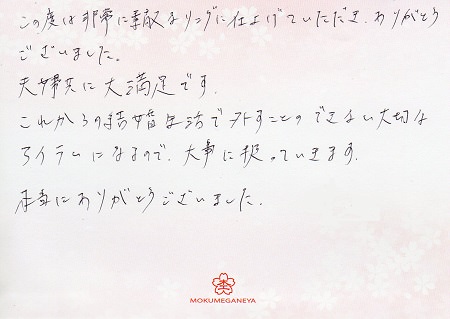 この度は非常に素敵なリングに仕上げていただき、ありがとう
ございました。
夫婦共に大満足です。
これからの結婚生活で外すことのできない大切な
アイテムになるので、大事に扱っていきます。
本当にありがとうございました。
MOKUMEGANEYA